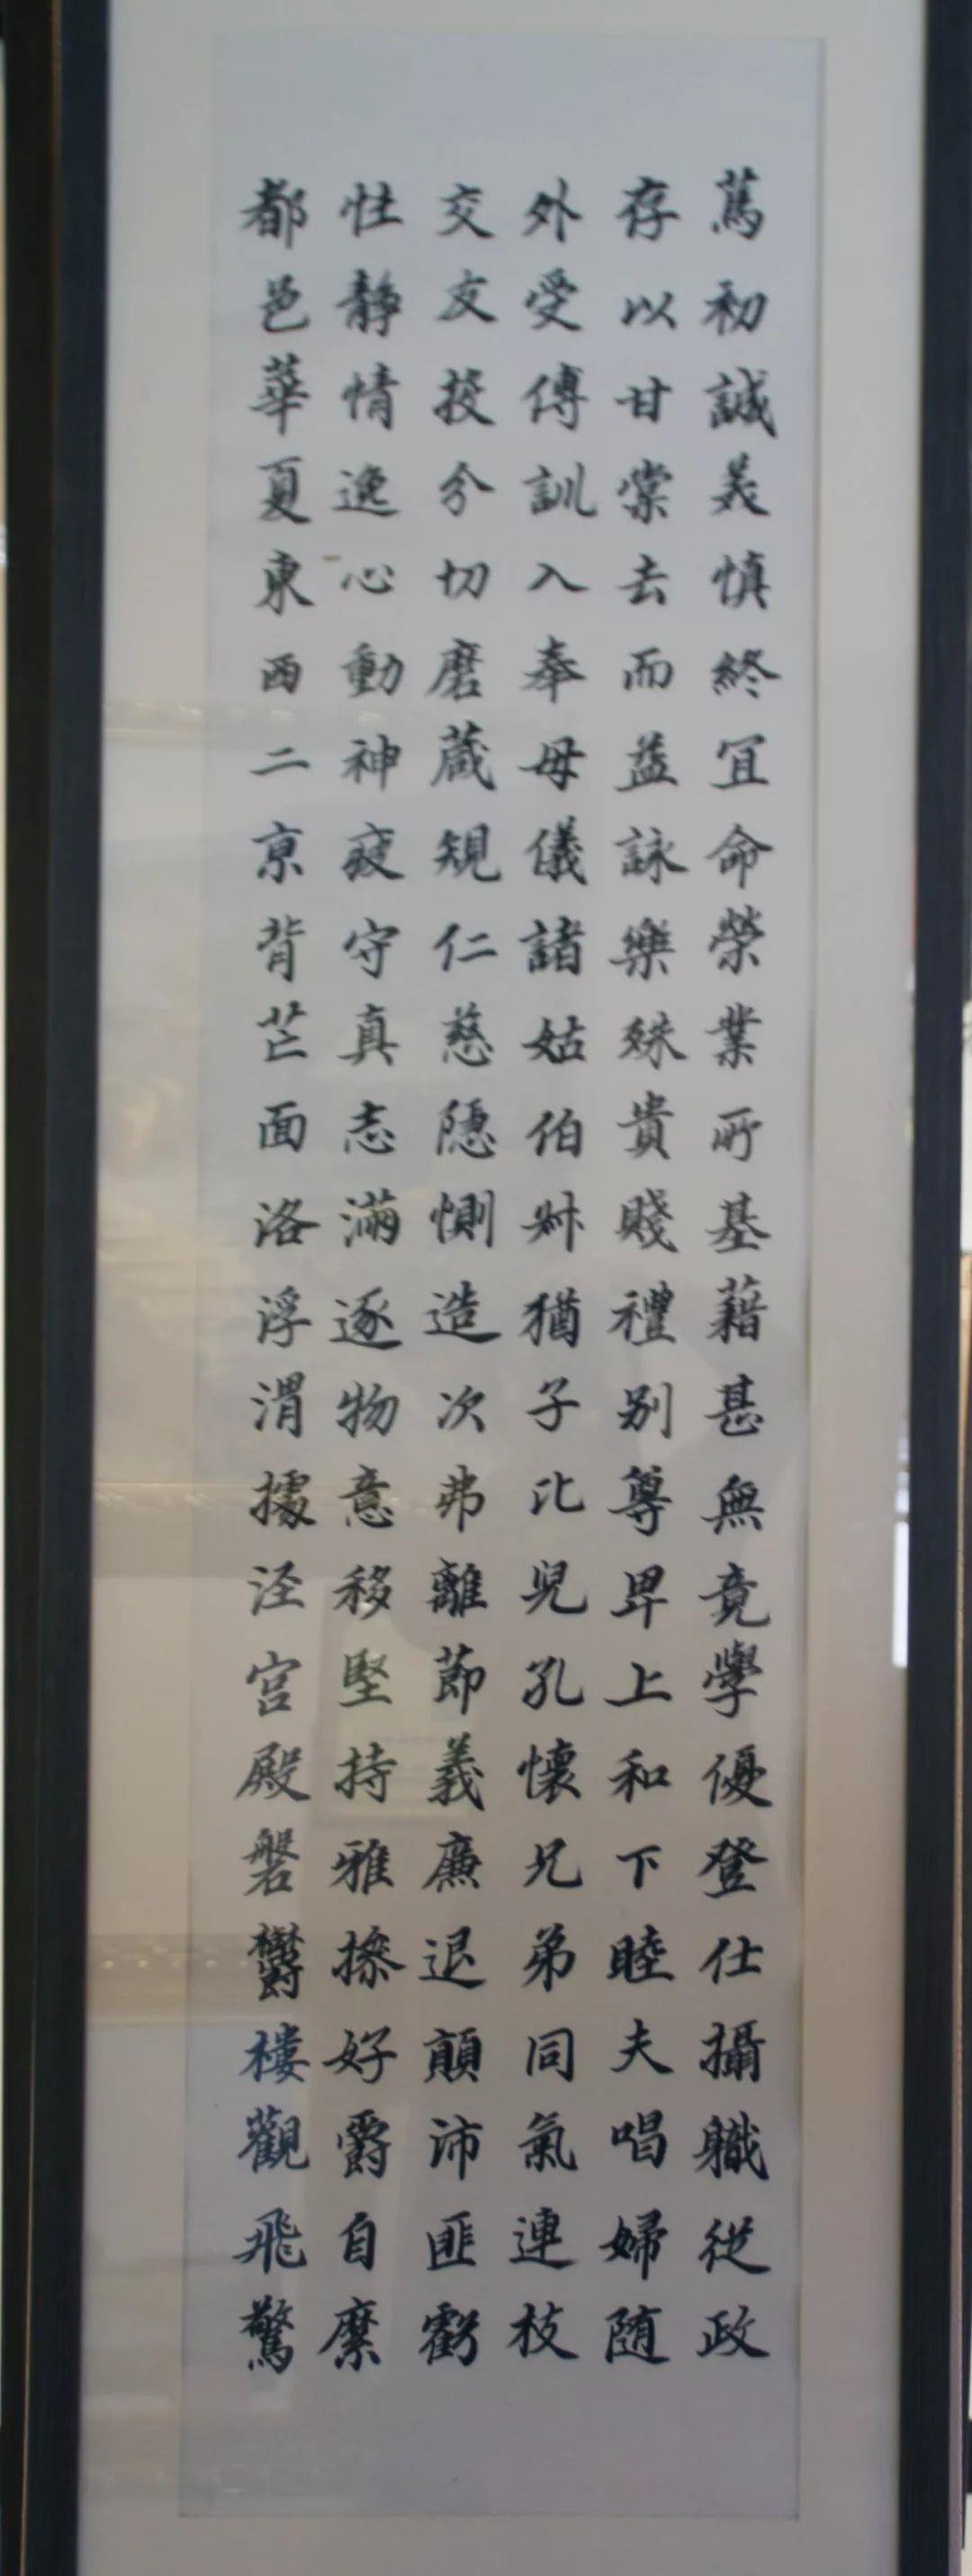 萬初誠美慎終宜命榮業所基藉甚無竟學優登仕攝職從政
存以甘棠去而益詠樂殊貴賤禮別尊卑上和下睦夫唱婦随
外受傅訓入奉母儀諸姑伯叔猶子比兒孔懷兄弟同氣連枝
交友投分切磨蔵規仁慈隱惻造次弗離節義廉退顛沛匪虧
性靜情逸心動神疲守真志滿逐物意移堅持雅操好爵自縻
都邑華夏東西二京背芒面洛浮渭據涇宮殿磐鬱樓觀飛驚